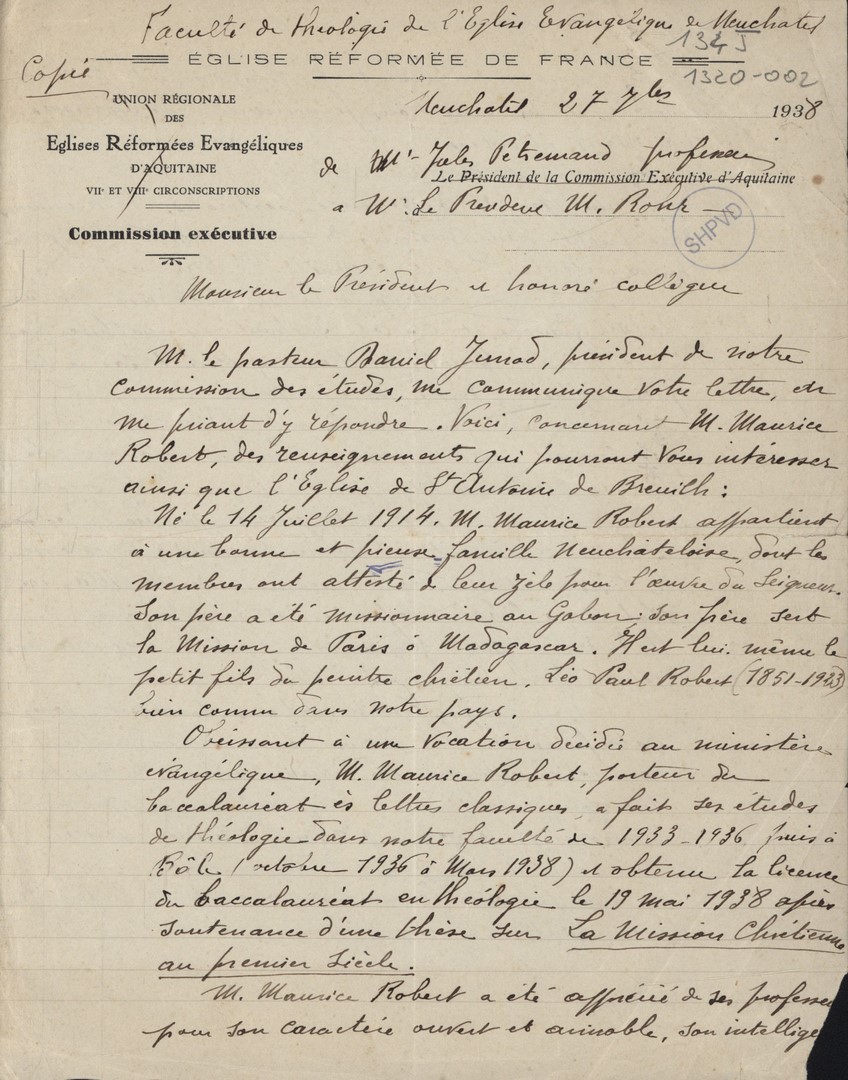 Faculté de théologie de l'Eglise Evangélique de Neuchatel
134 J
ÉGLISE RÉFORMÉE DE FRANCE
1320-002
Copie
UNION RÉGIONALE
DES
Eglises Réformées Evangéliques
D'AQUITAINE
VIIe ET VIIIe CIRCONSCRIPTIONS
Commission exécutive
Neuchatel 27 7bre 1938
de Mr Jules Petremand professeur
Le Président de la Commission Exécutive d'Aquitaine
a Mr. Le Président M. Roux
SHPVD
Monsieur le Président et honoré collègue
M. le pasteur Daniel Junod, président de notre
Commission des études, me communique votre lettre, en
me priant d'y répondre. Voici, concernant M. Maurice
Robert, des renseignements qui pourront vous intéresser
ainsi que l'Eglise de St Antoine de Breuilh :
Né le 14 Juillet 1914. M. Maurice Robert appartient
à une bonne et pieuse famille Neuchâteloise, dont les
membres ont attesté de leur zèle pour l'œuvre du Seigneur.
Son père a été missionnaire au Gabon ; son frère sert
la Mission de Paris à Madagascar. Il est lui-même le
petit fils du peintre chrétien, Léo Paul Robert (1851-1923)
bien connu dans notre pays.
Obéissant à une vocation décidée au ministère
évangélique, M. Maurice Robert, porteur du
baccalauréat ès lettres classiques, a fait ses études
de théologie dans notre faculté de 1933-1936 puis à
Bâle (octobre 1936 à Mars 1938) et obtenu la licence
du baccalauréat en théologie le 19 mai 1938 après
soutenance d'une thèse sur La Mission Chrétienne
au premier siècle.
M. Maurice Robert a été apprécié de ses professeu
pour son caractère ouvert et aimable, son intellige